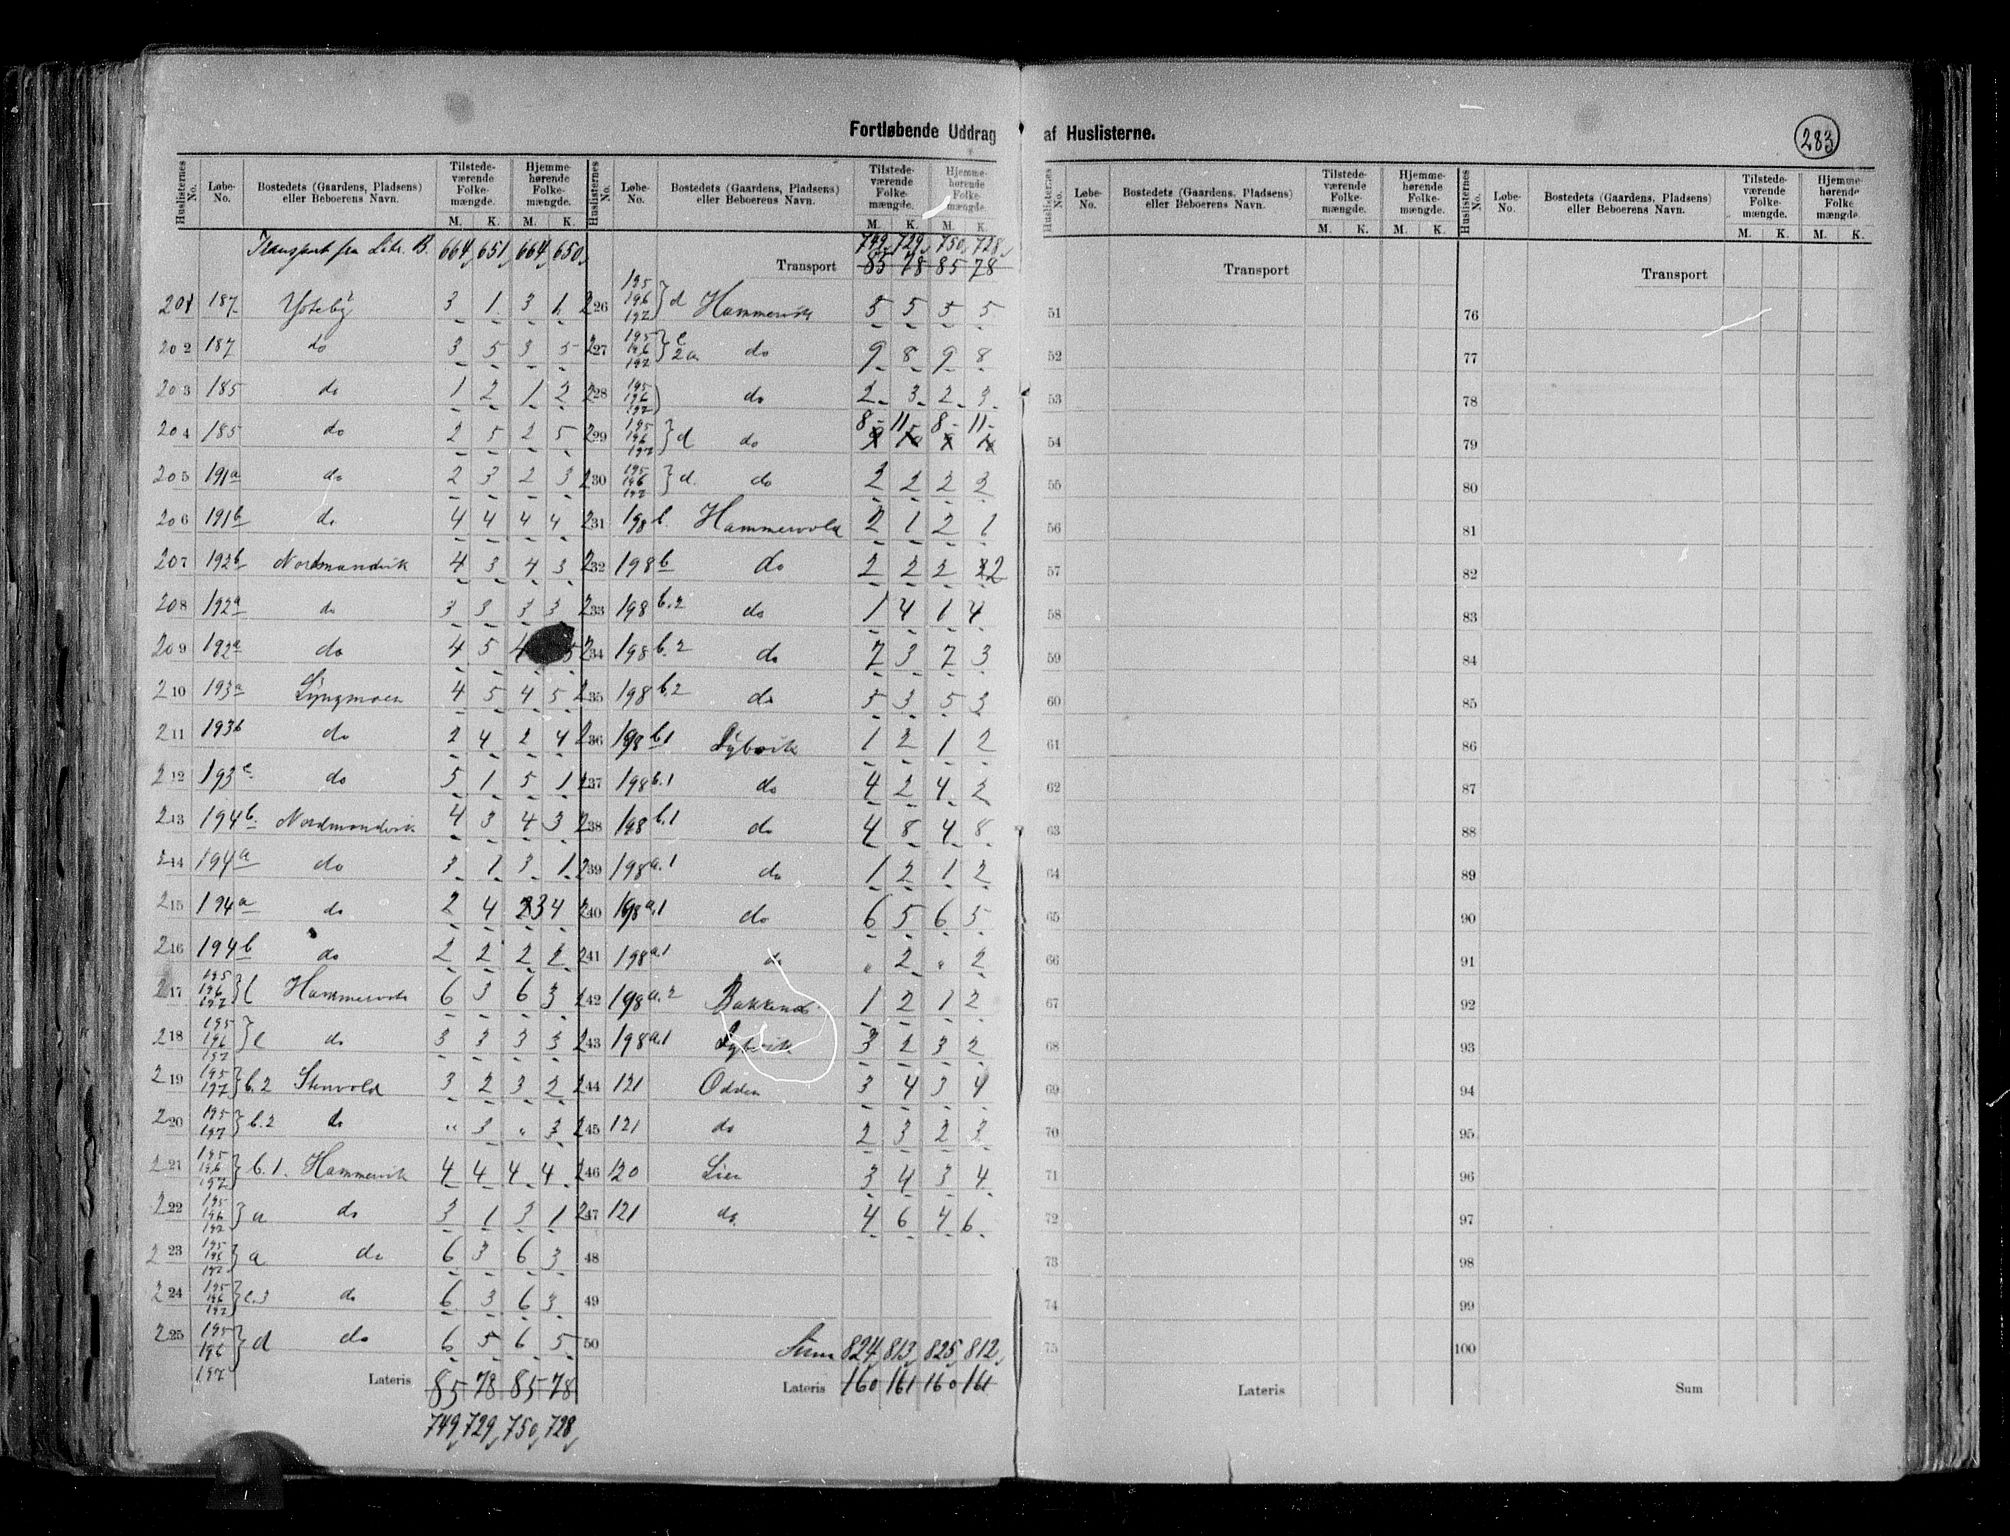 Fortløbende Uddrag af Huslisterne.
283
Huslisternes No. Løbe-No. Bostedets (Gaardens, Pladsens) eller Beboerens Navn. Tilstedeværende Folkemængde. M. K. Hjemmehørende Folkemængde. M. K.
Transport fra Litr. B. 664, 651, 664, 650,
201 187 Ysteby 3 1 3 1
202 187 do 3 5 3 5
203 185 do 1 2 1 2
204 185 do 2 5 2 5
205 191a do 2 3 2 3
206 191b do 4 4 4 4
207 192b Nordmandvik 4 3 4 3
208 192a do 3 3 3 3
209 192a do 4 5 4 5
210 193a Lyngmoen 4 5 4 5
211 193b do 2 4 2 4
212 193c do 5 1 5 1
213 194b. Nordmandvik 4 3 4 3
214 194a do 3 1 3 1
215 194a do 2 4 3 4
216 194b do 2 2 2 2
217 195 196 197 } Hammervik 6 3 6 3
218 195 196 197 } do 3 3 3 3
219 195 197 } b.2 Stenvold 3 2 3 2
220 195 197 } b.2 do " 3 " 3
221 195 196 197 } b.1. Hammervik 4 4 4 4
222 195 196 197 } a do 3 1 3 1
223 195 196 197 } a do 6 3 6 3
224 195 196 197 } do 6 3 6 3
225 195 196 197 } d do 6 5 6 5
Lateris 85 78 85 78
749, 729, 750, 728,
Huslisternes No. Løbe-No. Bostedets (Gaardens, Pladsens) eller Beboerens Navn. Tilstedeværende Folkemængde. M. K. Hjemmehørende Folkemængde. M. K.
749, 729, 750, 728,
Transport 85 78 85 78
226 195 196 197 } d Hammervik 5 5 5 5
227 195 196 197 } 2a do 9 8 9 8
228 195 196 197 ) do 2 3 2 3
229 195 196 197 } d do 8 11 8 11
230 195 196 197 } d. do 2 2 2 2
231 198 b. Hammervold 2 1 2 1
232 198 b do 2 2 2 2
233 198 b.2 do 1 4 1 4
234 198 b.2 do 7 3 7 3
235 198 b.2 do 5 3 5 3
236 198 b.1 Dybvik 1 2 1 2
237 198 b.1 do 4 2 4 2
238 198 b.1 do 4 8 4 8
239 198 a.1 do 1 2 1 2
240 198 a.1 do 6 5 6 5
241 198 a.1 do " 2 " 2
242 198 a.2 1 2 1 2
243 198 a.1 Dybvik 3 2 3 2
244 121 Odden 3 4 3 4
245 121 do 2 3 2 3
246 120 Lien 3 4 3 4
247 121 do. 4 6 4 6
48
49
50 Sum 824, 813, 825, 812,
Lateris 160 161 160 161
Huslisternes No. Løbe-No. Bostedets (Gaardens, Pladsens) eller Beboerens Navn. Tilstedeværende Folkemængde. M. K. Hjemmehørende Folkemængde. M. K.
Transport
51
52
53
54
55
56
57
58
59
60
61
62
63
64
65
66
67
68
69
70
71
72
73
74
75
Lateris
Huslisternes No. Løbe-No. Bostedets (Gaardens, Pladsens) eller Beboerens Navn. Tilstedeværende Folkemængde. M. K. Hjemmehørende Folkemængde. M. K.
Transport
76
77
78
79
80
81
82
83
84
85
86
87
88
89
90
91
92
93
94
95
96
97
98
99
100
Sum